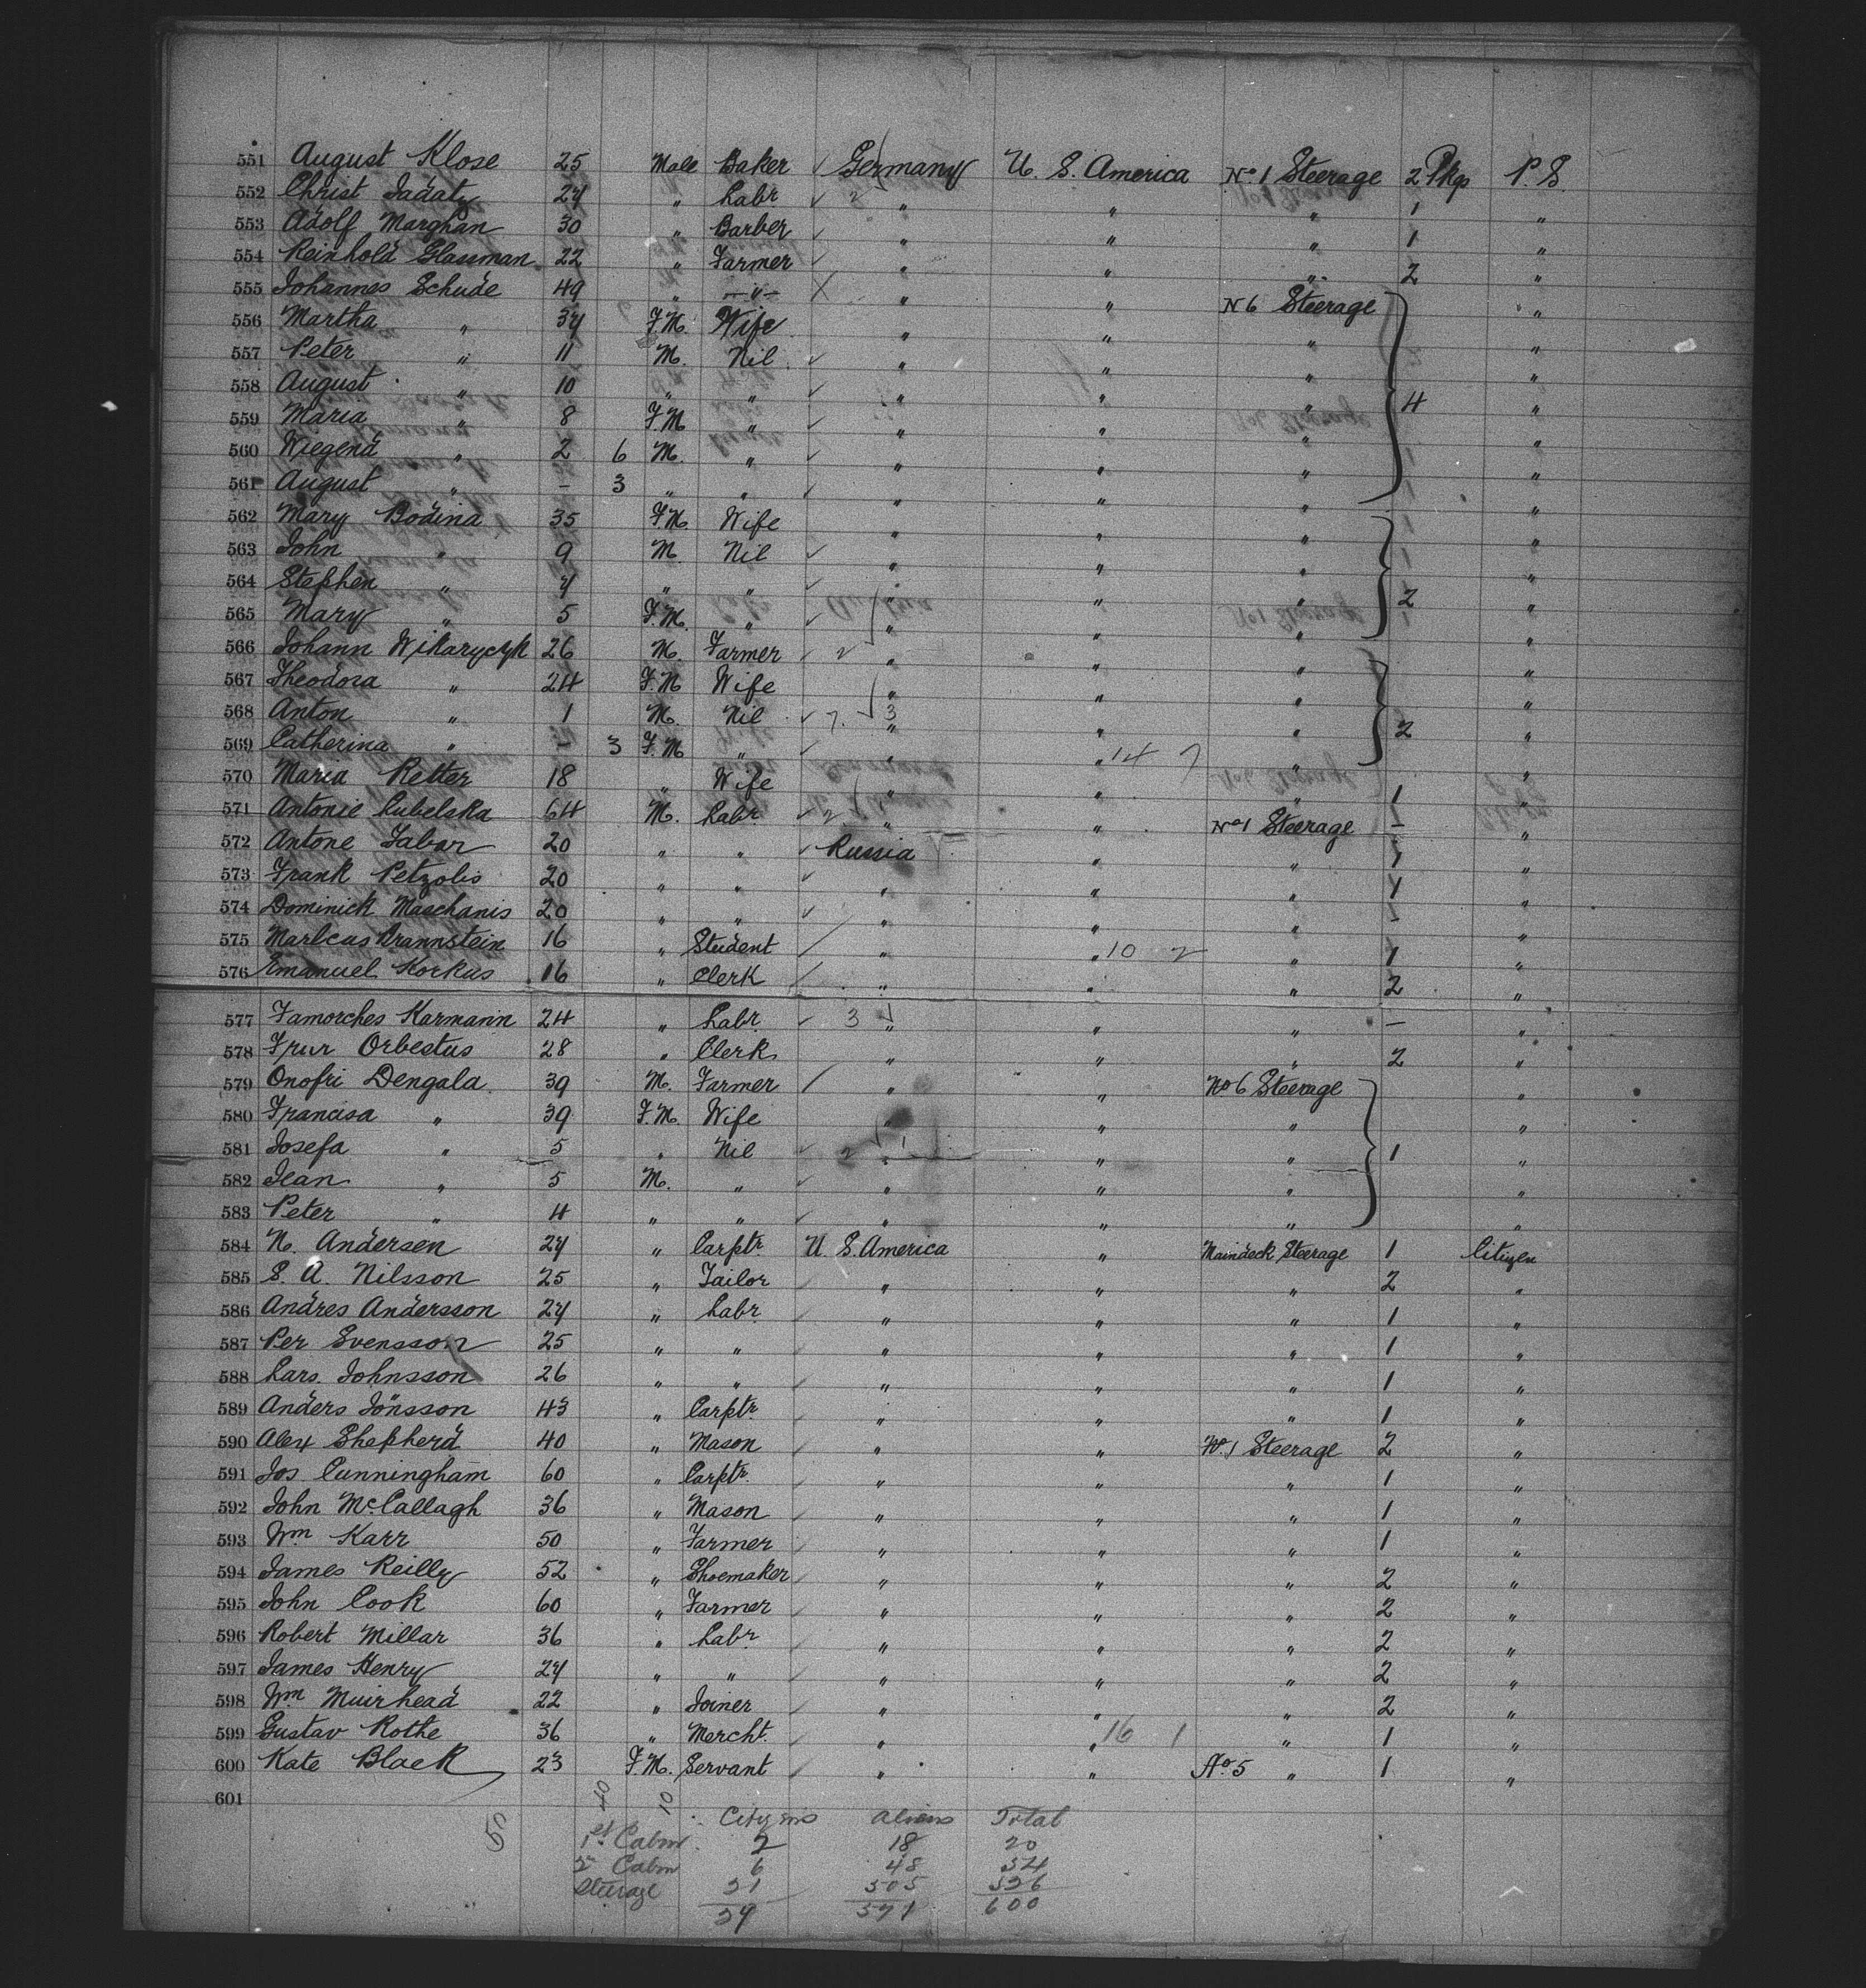 551 August Klose 25 Male Baker Germany U. S. America No. 1 Steerage 2 Pkgs P. S.
552 Christ Jadaty 24 " Labr 2 " " " 1 "
553 Adolf Marghan 30 " Barber " " " 1 "
554 Reinhold Glassman 22 " Farmer " " " 2 "
555 Johannes Schude 49 " —"— X " " N 6 Steerage "
556 Martha " 34 F.M. Wife " " " "
557 Peter " 11 M. Nil " " " "
558 August " 10 " " " " " 4 "
559 Maria " 8 F.M " " " " "
560 Wiegend " 2 6 M. " " " " "
561 August " – 3 " " " " " "
562 Mary Bodina 35 F.M. Wife " " " "
563 John " 9 M. Nil " " " "
564 Stephen " 4 " " " " " 2 "
565 Mary " 5 F.M. " " " " "
566 Johann Wikaryczyk 26 M. Farmer 2 " " " "
567 Theodora " 24 F.M Wife " " " "
568 Anton " 1 M. Nil 7. 3 " " " 2 "
569 Catherina " – 3 F.M " " " 14 7 " "
570 Maria Retter 18 " Wife " " " 1 "
571 Antonie Lubelska 64 M. Labr 2 " " No 1 Steerage – "
572 Antone Labar 20 " " Russia " " 1 "
573 Frank Petzolis 20 " " " " " 1 "
574 Dominick Maschanis 20 " " " " " – "
575 Marbcus Brannstein 16 " Student " " 10 2 " 1 "
576 Emanuel Korkus 16 " Clerk " " " 2 "
577 Famorches Karmann 24 " Labr 3 " " " – "
578 Orbestus 28 " Clerk " " " 2 "
579 Onofri Dengala 39 M. Farmer " " No 6 Steerage "
580 Francisa " 39 F.M. Wife " " " "
581 Josefa " 5 " Nil 2 " " " 1 "
582 Jean " 5 M. " " " " "
583 Peter " 4 " " " " " "
584 N. Andersen 24 " Carptr. U. S. America " Maindeck Steerage 1 Citizen
585 S. A. Nilsson 25 " Tailor " " " 2 "
586 Andres Andersson 24 " Labr " " " 1 "
587 Per Svensson 25 " " " " " 1 "
588 Lars. Johnsson 26 " " " " " 1 "
589 Anders Jönsson 43 " Carptr. " " " 1 "
590 Alex Shepherd 40 " Mason " " No. 1 Steerage 2 "
591 Jos Cunningham 60 " Carptr. " " " 1 "
592 John McCallagh 36 " Mason " " " 1 "
593 Wm Karr 50 " Farmer " " " 1 "
594 James Reilly 52 " Shoemaker " " " 2 "
595 John Cook 60 " Farmer " " " 2 "
596 Robert Millar 36 " Labr " " " 2 "
597 James Henry 24 " " " " " 2 "
598 Wm Muirhead 22 " Joiner " " " 2 "
599 Gustav Rothe 36 " Mercht. " " 16 1 " 1 "
600 Kate Black 23 F.M. Servant " " No. 5 " 1 "
601
40 10 Citizens Aliens Total
50 1st Cabin 2 18 20
2n Cabin 6 48 54
Steerage 21 505 526
29 571 600